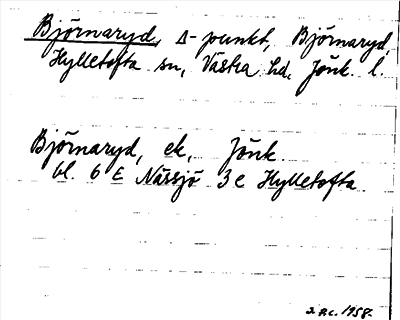 Björnaryd, ∆-punkt, Björnaryd,
Hylletofta sn, Västra hd, Jönk. l.
Björnaryd, ek, Jönk.
bl. 6 E Nässjö 3 e Hylletofta
1958.